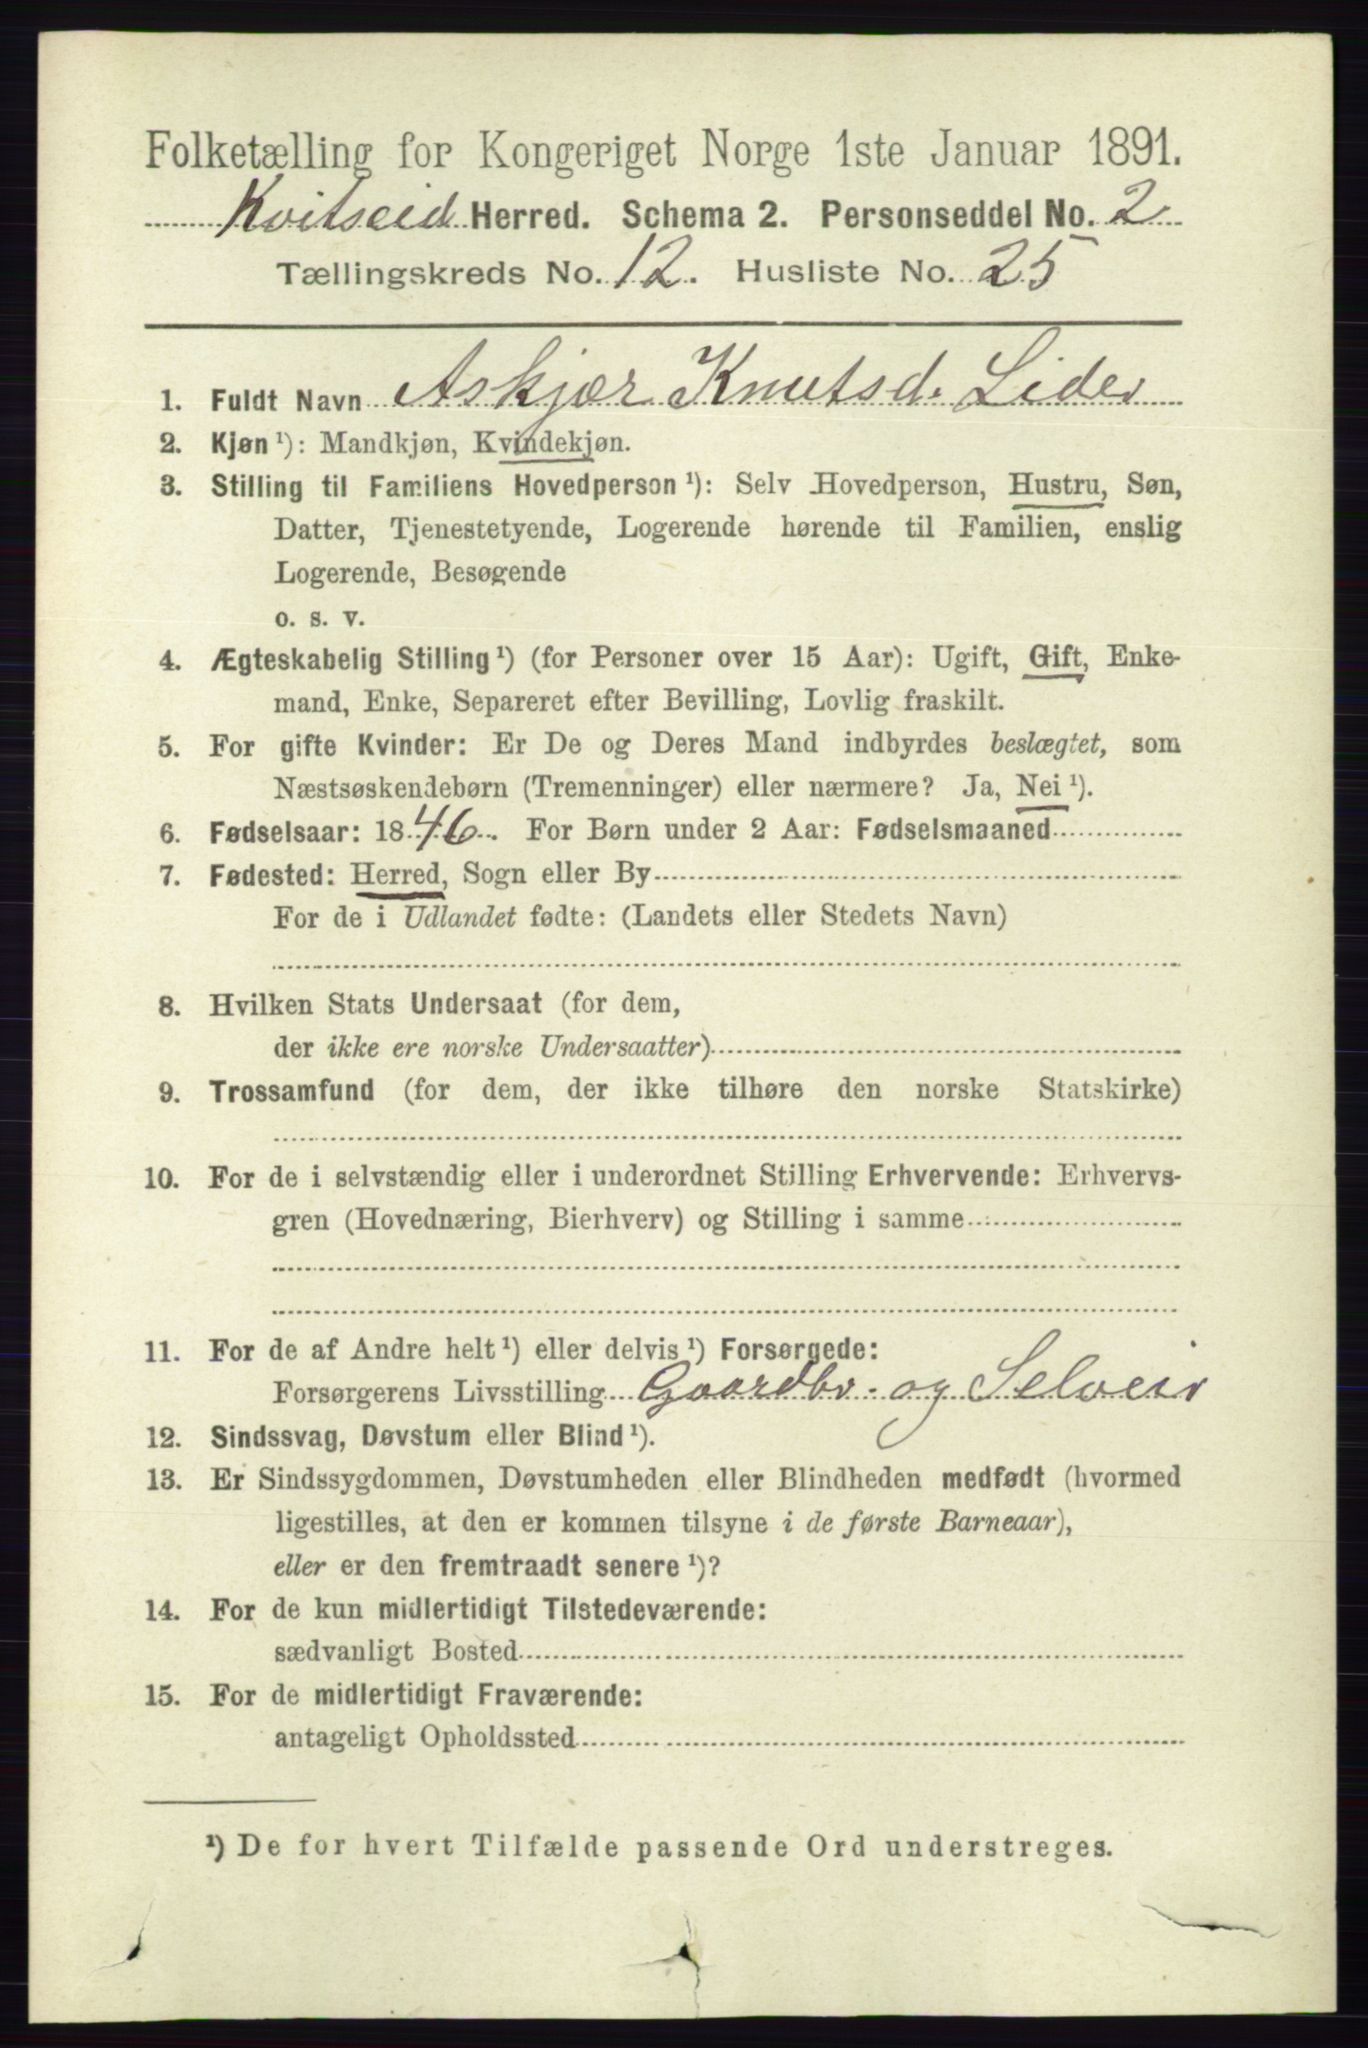 Folketælling for Kongeriget Norge 1ste Januar 1891.
Kvitseid Herred. Schema 2. Personseddel No. 2
Tællingskreds No. 12. Husliste No. 25
1. Fuldt Navn Askjær Knutsd. Lider
2. Kjøn ¹): Mandkjøn, Kvindekjøn.
3. Stilling til Familiens Hovedperson ¹): Selv Hovedperson, Hustru, Søn,
Datter, Tjenestetyende, Logerende hørende til Familien, enslig
Logerende, Besøgende
o. s. v.
4. Ægteskabelig Stilling ¹) (for Personer over 15 Aar): Ugift, Gift, Enke-
mand, Enke, Separeret efter Bevilling, Lovlig fraskilt.
5. For gifte Kvinder: Er De og Deres Mand indbyrdes beslægtet, som
Næstsøskendebørn (Tremenninger) eller nærmere? Ja, Nei ¹).
6. Fødselsaar: 1846. For Børn under 2 Aar: Fødselsmaaned
7. Fødested: Herred, Sogn eller By
For de i Udlandet fødte: (Landets eller Stedets Navn)
8. Hvilken Stats Undersaat (for dem,
der ikke ere norske Undersaatter)
9. Trossamfund (for dem, der ikke tilhøre den norske Statskirke)
10. For de i selvstændig eller i underordnet Stilling Erhvervende: Erhvervs-
gren (Hovednæring, Bierhverv) og Stilling i samme
11. For de af Andre helt ¹) eller delvis ¹) Forsørgede:
Forsørgerens Livsstilling Gaardbr. og Selveir
12. Sindssvag, Døvstum eller Blind ¹).
13. Er Sindssygdommen, Døvstumheden eller Blindheden medfødt (hvormed
ligestilles, at den er kommen tilsyne i de første Barneaar),
eller er den fremtraadt senere ¹)?
14. For de kun midlertidigt Tilstedeværende:
sædvanligt Bosted
15. For de midlertidigt Fraværende:
antageligt Opholdssted
¹) De for hvert Tilfælde passende Ord understreges.